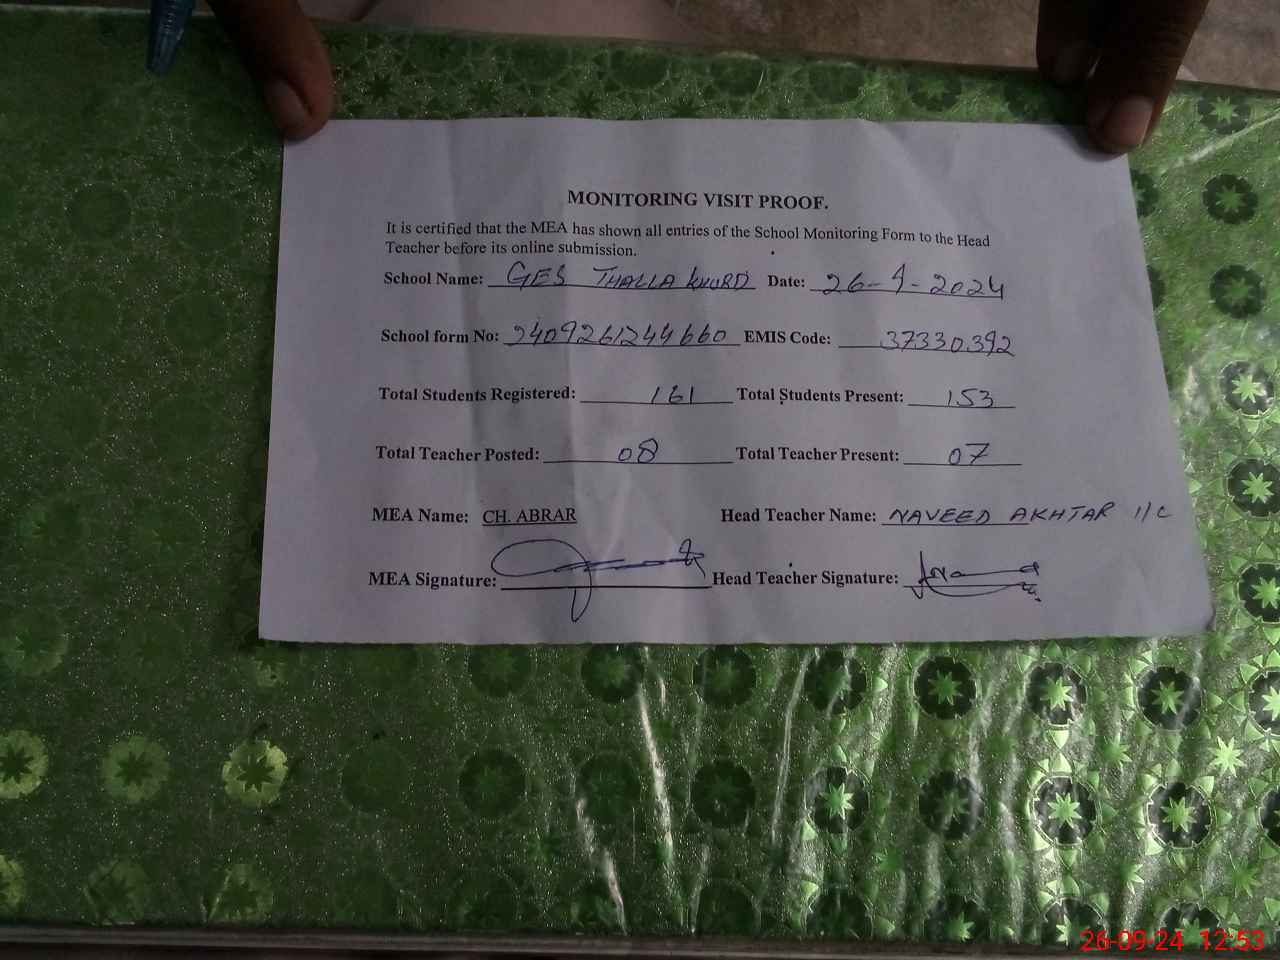 MONITORING VISIT PROOF.
It is certified that the MEA has shown all entries of the School Monitoring Form to the Head
Teacher before its online submission.
School Name: GES THALLA KHURD Date: 26-9-2024
School form No: 2409261244660 EMIS Code: 37330392
Total Students Registered: 161 Total Students Present: 153
Total Teacher Posted: 08 Total Teacher Present: 07
MEA Name: CH. ABRAR Head Teacher Name: NAVEED AKHTAR I/C
MEA Signature: Head Teacher Signature:
26-09-24 12:53